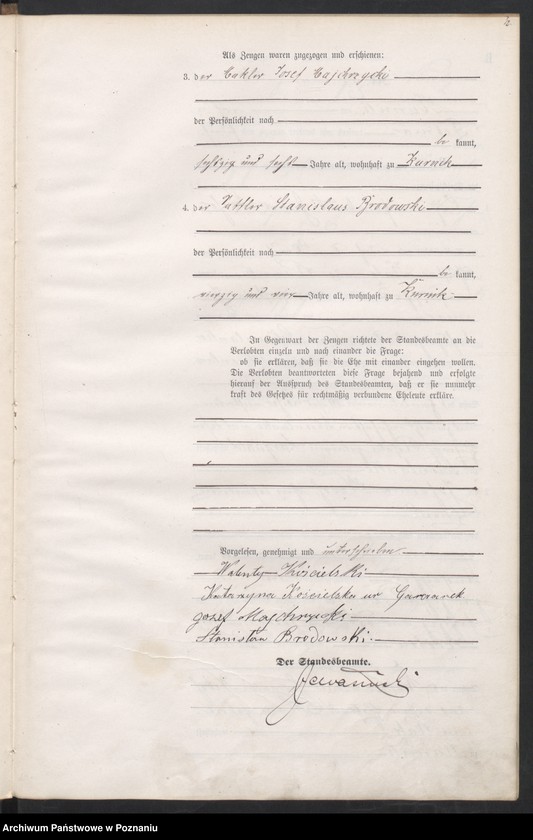 Als Zeugen waren zugezogen und erschienen:
3. der Josef Majchrzycki
der Persönlichkeit nach
be kannt,
sechszig und sechs Jahre alt, wohnhaft zu Kurnik
4. der Sattler Stanislaus Brodowski
der Persönlichkeit nach
be kannt,
vierzig und vier Jahre alt, wohnhaft zu Kurnik
In Gegenwart der Zeugen richtete der Standesbeamte an die
Verlobten einzeln und nach einander die Frage:
ob sie erklären, daß sie die Ehe mit einander eingehen wollen.
Die Verlobten beantworteten diese Frage bejahend und erfolgte
hierauf der Ausspruch des Standesbeamten, daß er sie nunmehr
kraft des Gesetzes für rechtmäßig verbundene Eheleute erkläre.
Vorgelesen, genehmigt und unterschrieben
Walenty Kościelski
Katarzyna Kościelska
Jozef Majchrzycki
Stanisław Brodowski.
Der Standesbeamte.
Archiwum Państwowe w Poznaniu